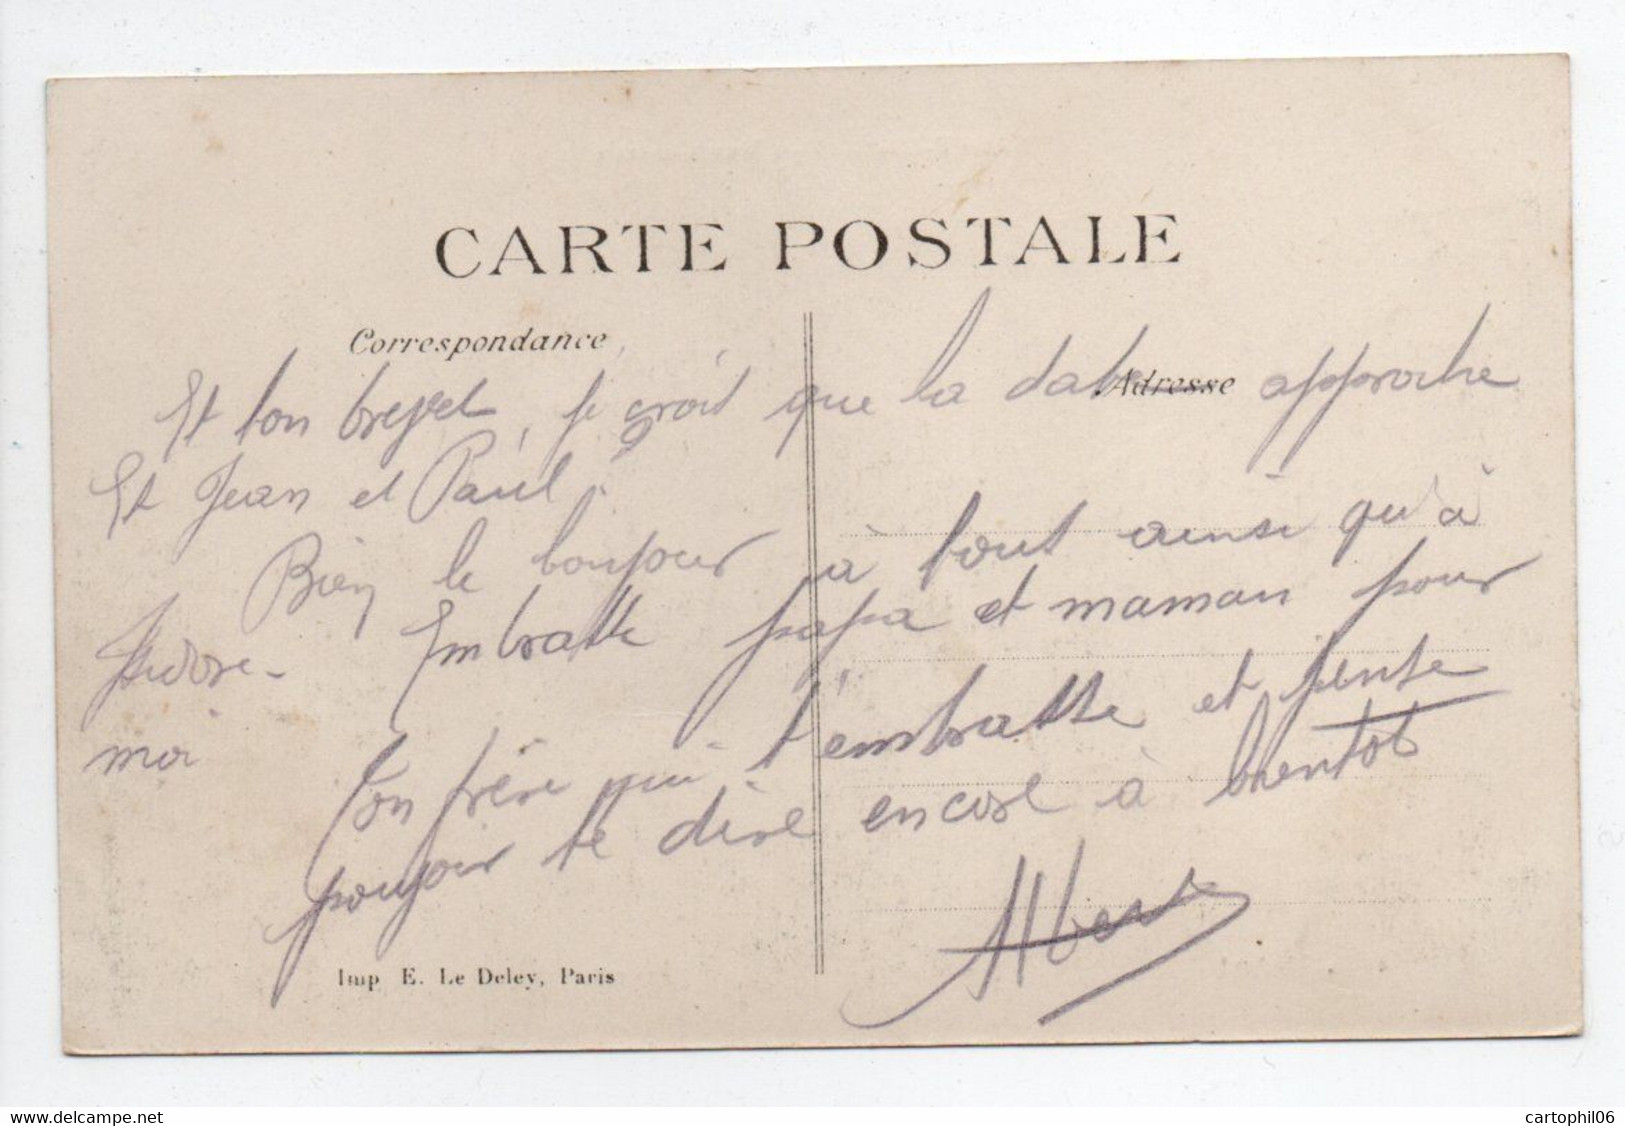 CARTE POSTALE
Correspondance
Adresse
Et ton brevet, je croit que la date approche
Et Jean et Paul ?
Bien le bonjour à tout ainsi qu'à
Isidore - Embrasse papa et maman pour
moi
Ton frère qui t'embrasse et pense
pouvoir te dire encore à bientot
Albert
Imp E. Le Deley, Paris
cartophil06